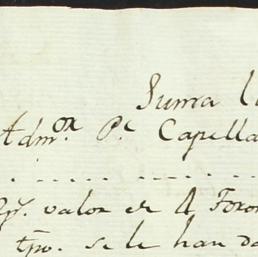 Suma
Adm.or P.e Capella
valor de A Foron
tpo. se le han da